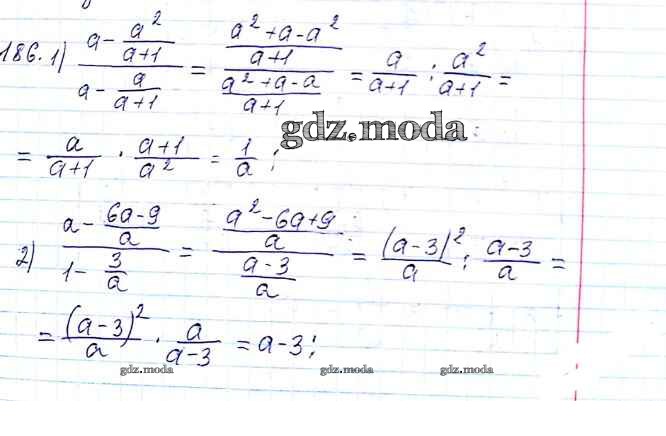 186. 1) (a - a²/(a+1)) / (a - a/(a+1)) = ((a²+a-a²)/(a+1)) / ((a²+a-a)/(a+1)) = a/(a+1) : a²/(a+1) =
gdz.moda
= a/(a+1) · (a+1)/a² = 1/a ;
2) (a - (6a-9)/a) / (1 - 3/a) = ((a²-6a+9)/a) / ((a-3)/a) = (a-3)²/a : (a-3)/a =
= (a-3)²/a · a/(a-3) = a-3 ;
gdz.moda gdz.moda gdz.moda